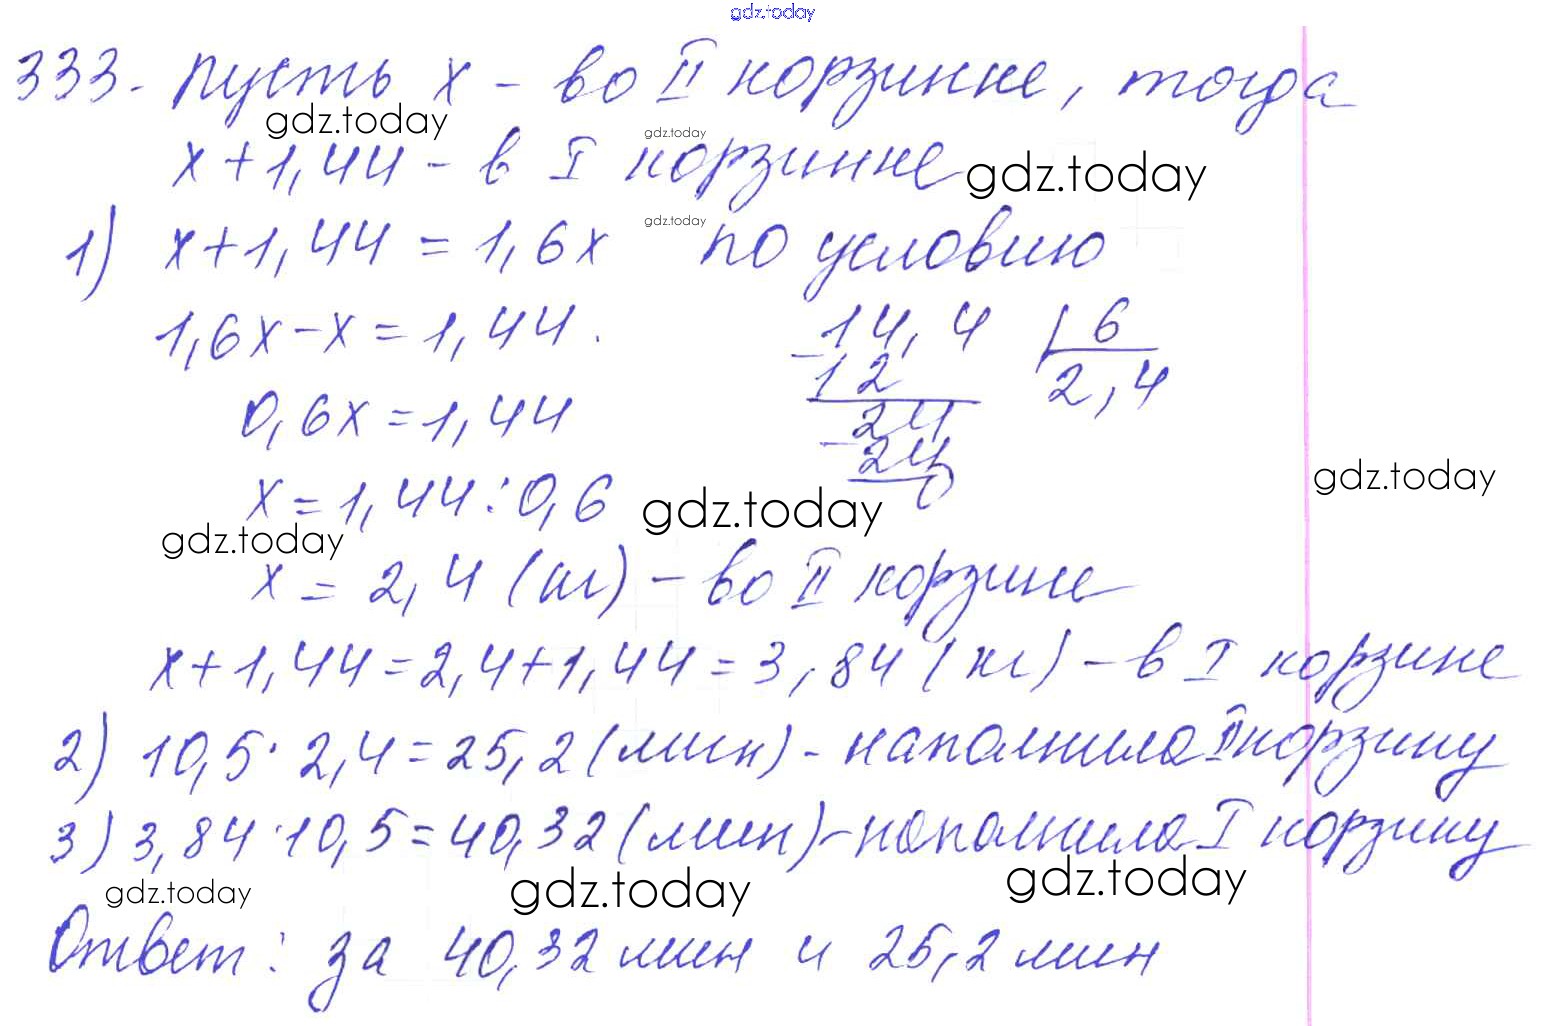 gdz.today
333. Пусть x - во II корзинке, тогда
gdz.today
gdz.today
x + 1,44 - в I корзинке
gdz.today
1) x + 1,44 = 1,6x по условию
gdz.today
1,6x - x = 1,44.
14,4 | 6
- 12
2,4
0,6x = 1,44
24
- 24
0
x = 1,44 : 0,6
gdz.today
gdz.today
gdz.today
x = 2,4 (кг) - во II корзине
x + 1,44 = 2,4 + 1,44 = 3,84 (кг) - в I корзине
2) 10,5 · 2,4 = 25,2 (мин) - наполнила II корзину
3) 3,84 · 10,5 = 40,32 (мин) - наполнила I корзину
gdz.today
gdz.today
gdz.today
Ответ: за 40,32 мин и 25,2 мин